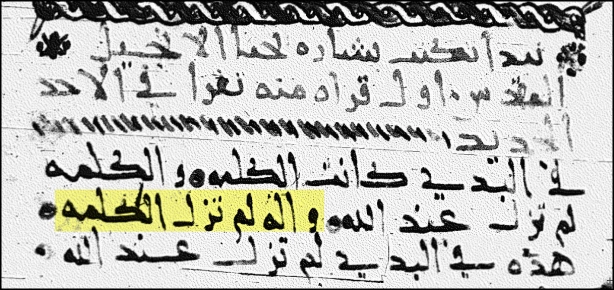 نبدا بكتب بشاره يحنا الانجيل
المقدس اول قراه منه تقرا في الاحد
الجديد
في البدي كانت الكلمه و الكلمه
لم تزل عند الله و اله لم تزل الكلمه
هذه في البدي لم تزل عند الله